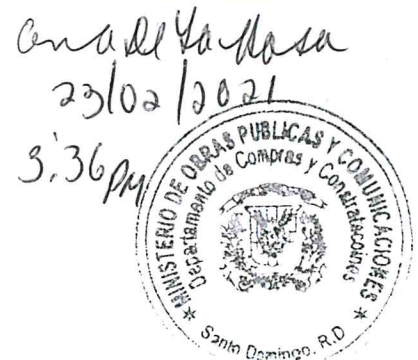 Ana De La Rosa
23/02/2021
3:36 PM
* MINISTERIO DE OBRAS PUBLICAS Y COMUNICACIONES *
Departamento de Compras y Contrataciones
Santo Domingo, R.D